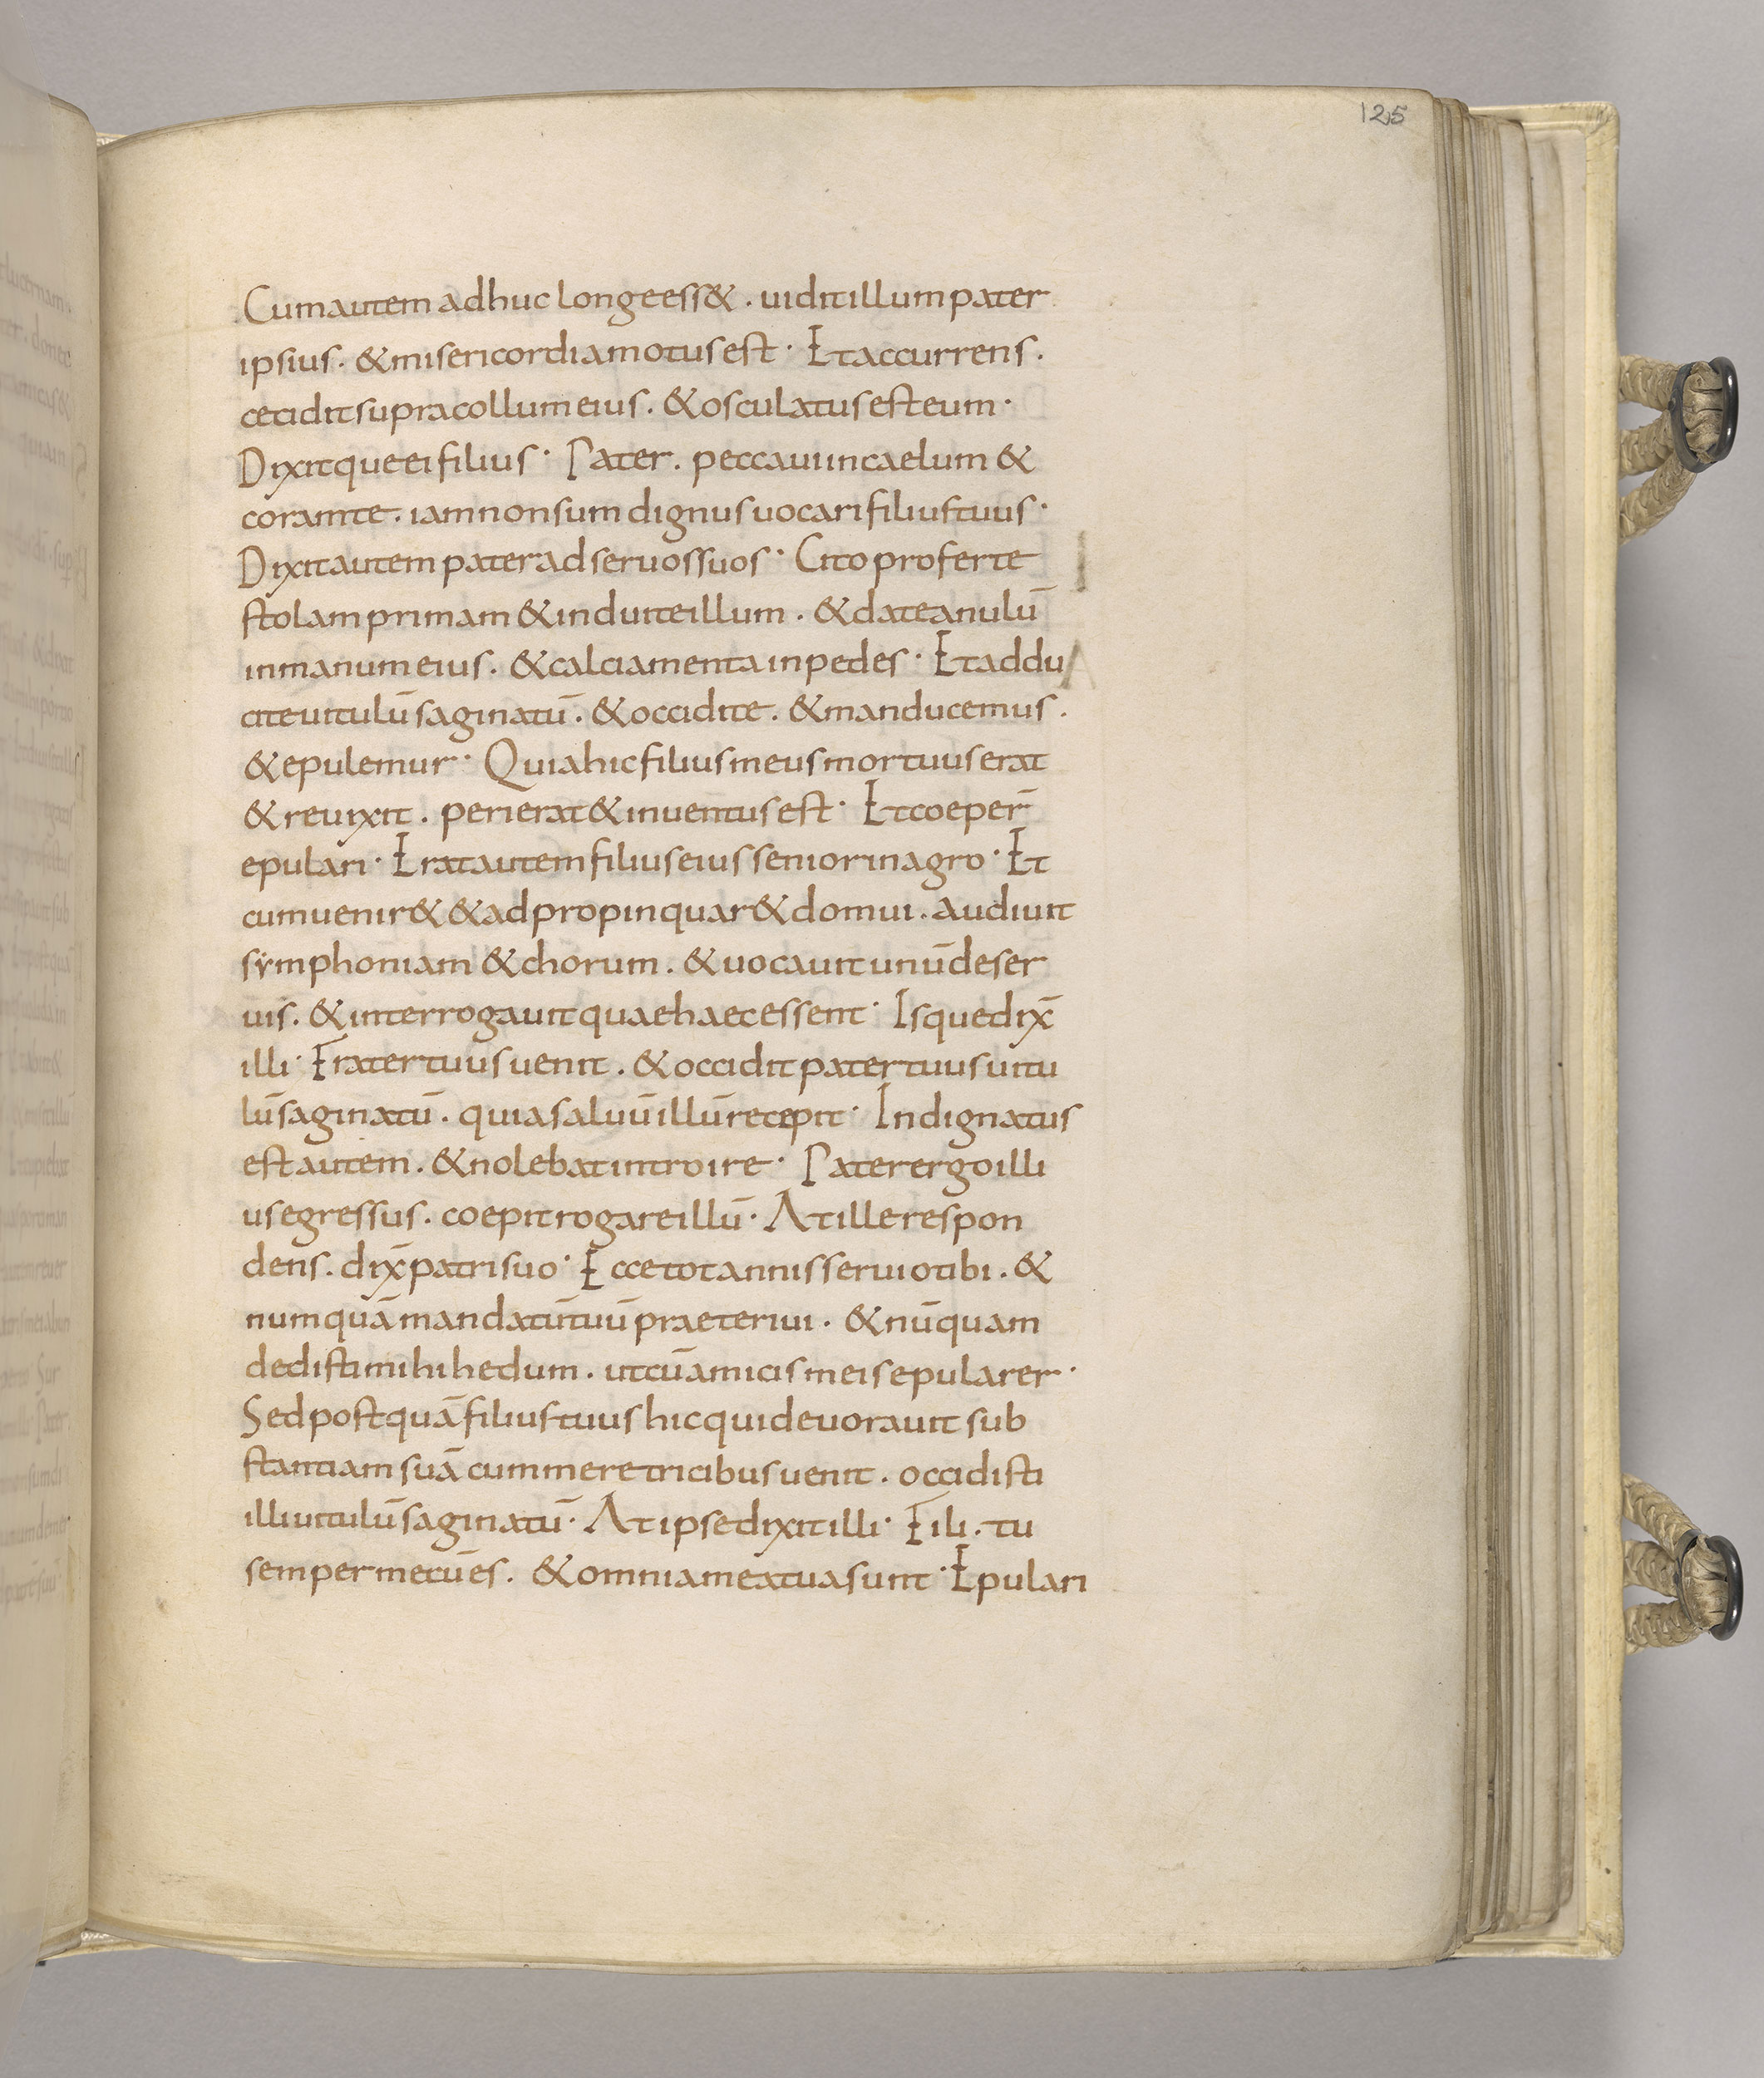 125
Cum autem adhuc longe ess&. uidit illum pater
ipsius. & misericordia motus est· Et accurrens.
cecidit supra collum eius. & osculatus est eum·
Dixitque ei filius· Pater. peccaui in caelum &
coram te. iam non sum dignus uocari filius tuus·
Dixit autem pater ad seruos suos· Cito proferte
stolam primam & induite illum. & date anulū
in manum eius. & calciamenta in pedes· Et addu
cite uitulū saginatū. & occidite. & manducemus.
& epulemur· Quia hic filius meus mortuus erat
& reuixit. perierat & inuentus est· Et coeper̄
epulari· Erat autem filius eius senior in agro· Et
cum uenir& & adpropinquar& domui. audiuit
sẏmphoniam & chorum. & uocauit unū de ser
uis. & interrogauit quae haec essent· Isque dix̄
illi· Frater tuus uenit. & occidit pater tuus uitu
lū saginatū. quia saluū illū recepit· Indignatus
est autem. & nolebat introire· Pater ergo illi
us egressus. coepit rogare illū· At ille respon
dens. dix̄ patri suo· Ecce tot annis seruio tibi. &
numquā mandatū tuū praeteriui. & nūquam
dedisti mihi hedum. ut cū amicis meis epularer·
Sed postquā filius tuus hic qui deuorauit sub
stantiam suā cum meretricibus uenit. occidisti
illi uitulū saginatū· At ipse dixit illi· Fili. tu
semper mecū es. & omnia mea tua sunt· Epulari